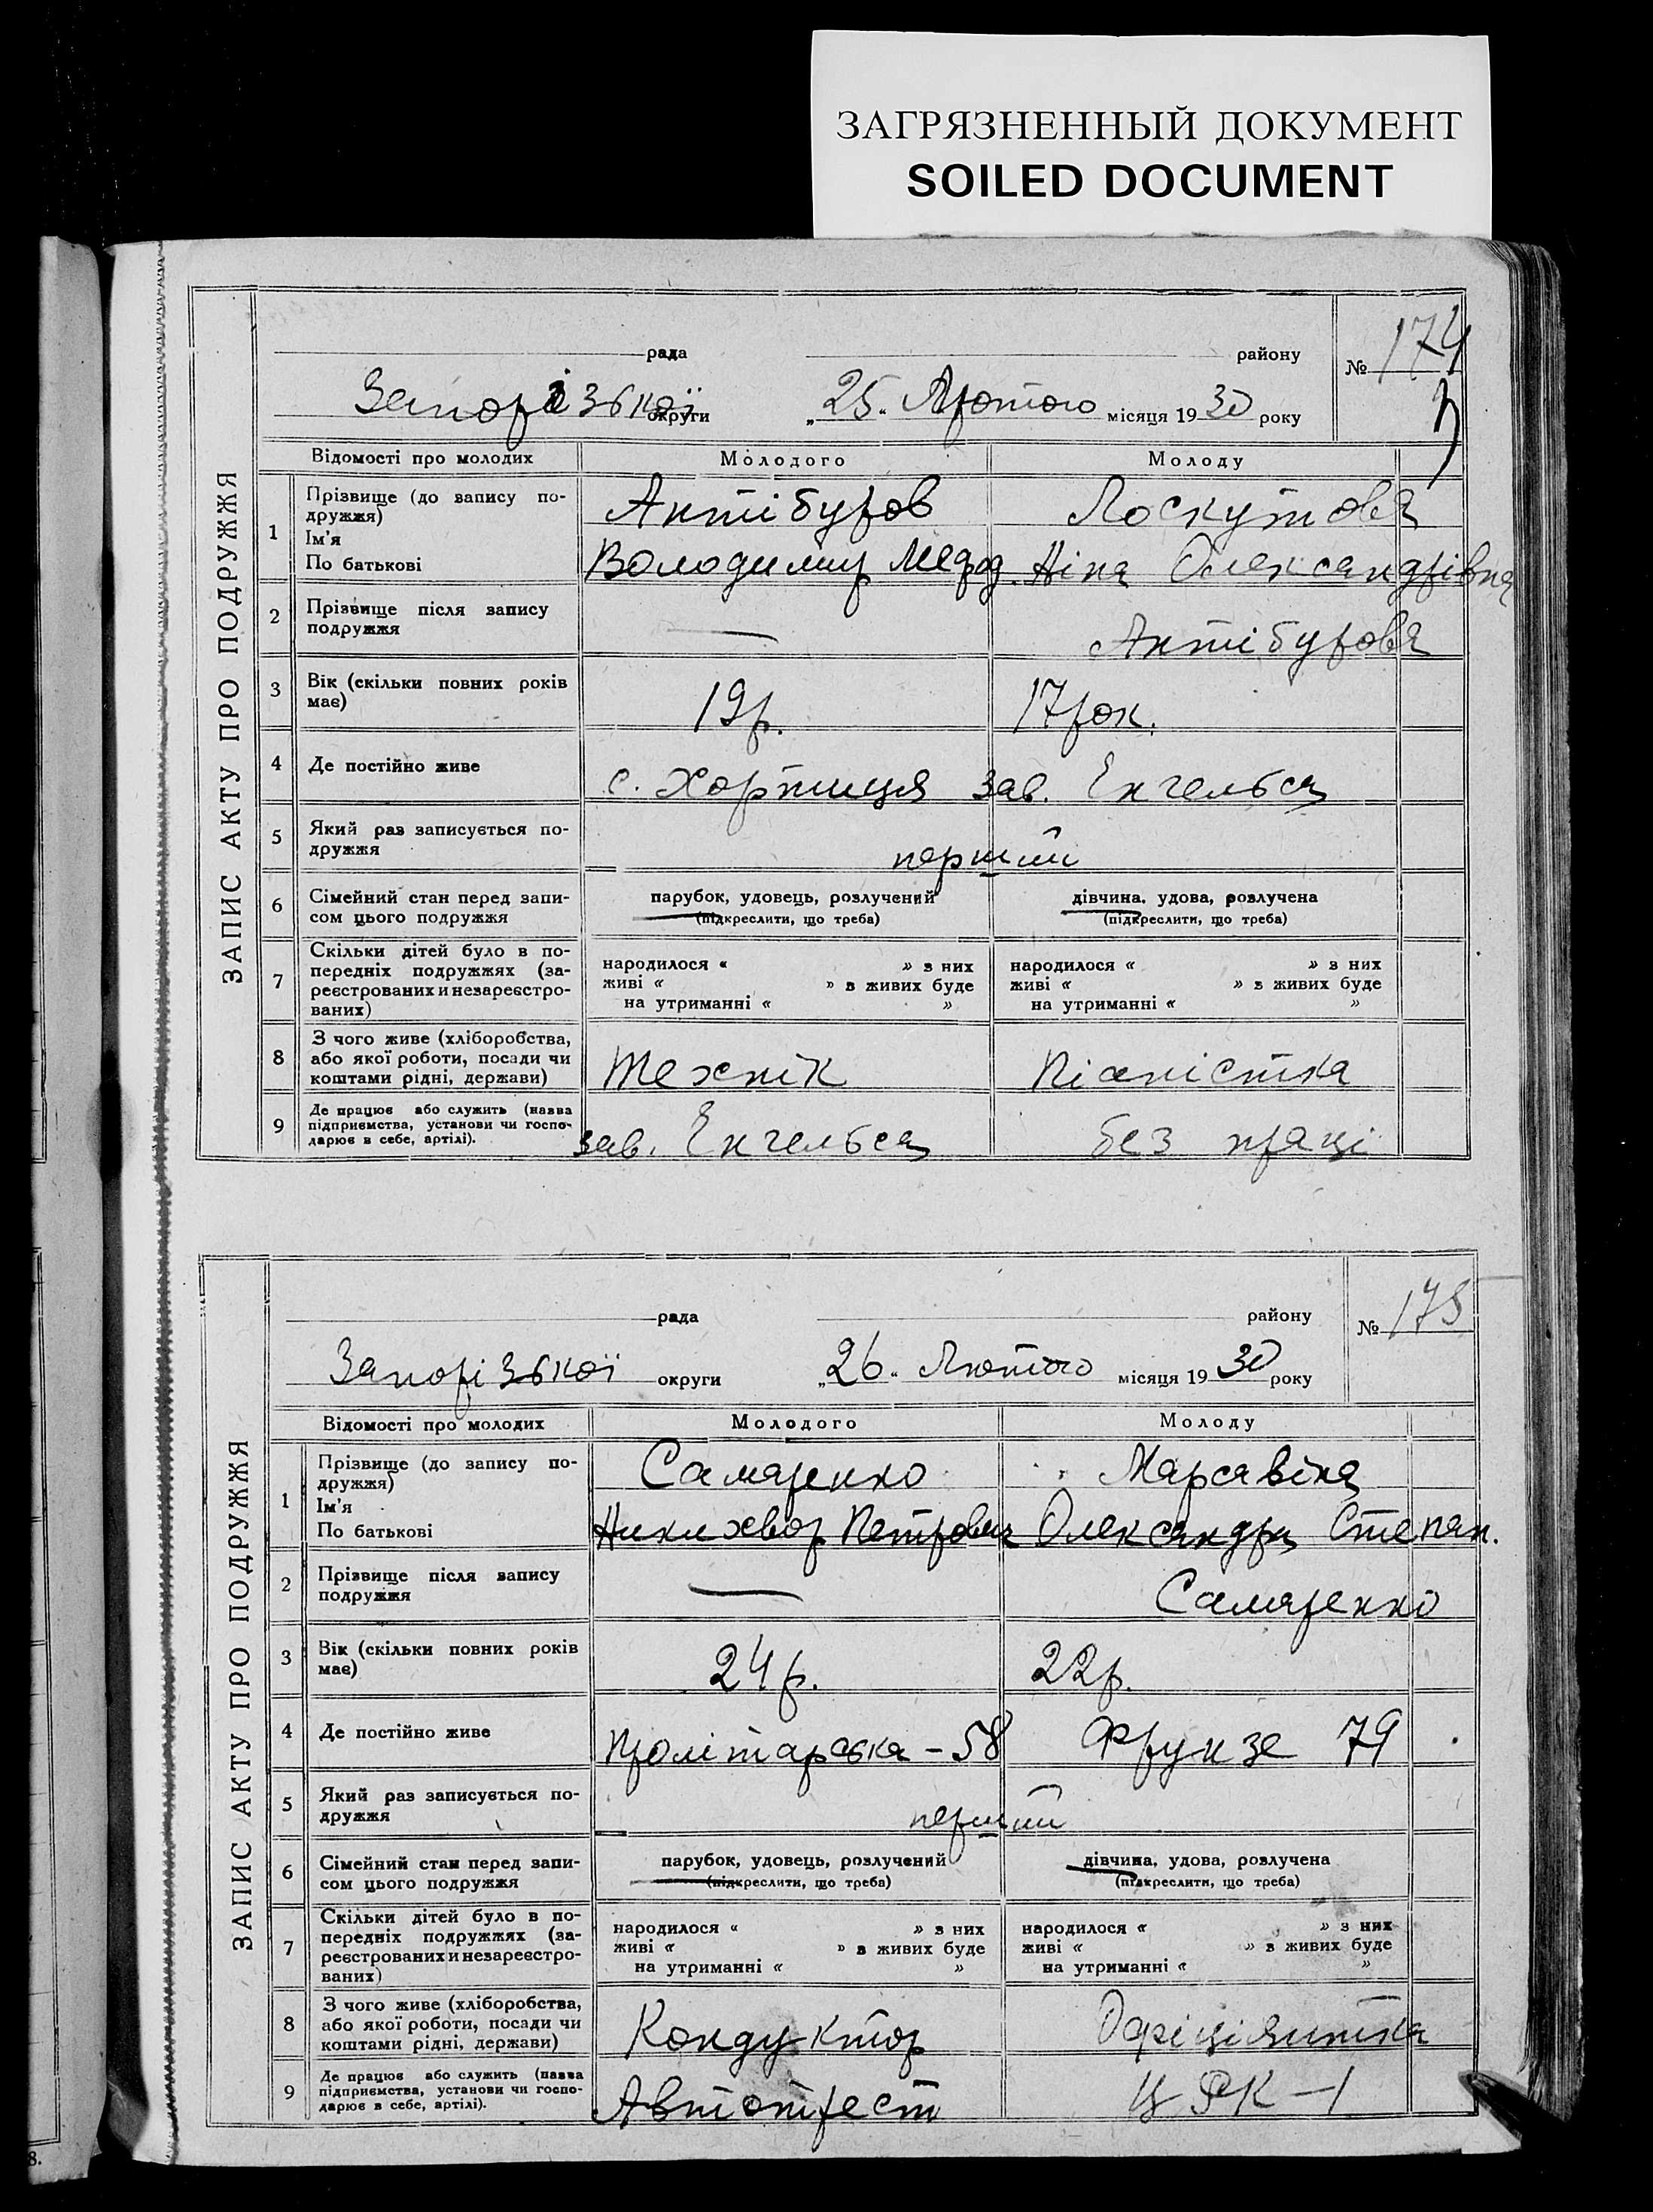 ЗАГРЯЗНЕННЫЙ ДОКУМЕНТ
SOILED DOCUMENT
ЗАПИС АКТУ ПРО ПОДРУЖЖЯ
рада району № 174
Запорізької округи „25“ Лютого місяця 1930 року
Відомості про молодих Молодого Молоду
1 Прізвище (до запису по-
дружжя) Антібуров Лоскутова
Ім'я
По батькові Володимир Мефод. Ніна Олександрівна
2 Прізвище після запису
подружжя — Антібурова
3 Вік (скільки повних років
має) 19р. 17рок.
4 Де постійно живе с. Хортиця зав. Енгельса
5 Який раз записується по-
дружжя перший
6 Сімейний стан перед запи-
сом цього подружжя
парубок, удовець, розлучений дівчина, удова, розлучена
(підкреслити, що треба) (підкреслити, що треба)
7 Скільки дітей було в по-
передніх подружжях (за-
реєстрованих и незареєстро-
ваних)
народилося « » з них народилося « » з них
живі « » з живих буде живі « » з живих буде
на утриманні « » на утриманні « »
8 З чого живе (хліборобства,
або якої роботи, посади чи
коштами рідні, держави) Технік Піяністка
9 Де працює або служить (назва
підприємства, установи чи госпо-
дарює в себе, артілі). зав. Енгельса без праці
ЗАПИС АКТУ ПРО ПОДРУЖЖЯ
рада району № 175
Запорізької округи „26“ Лютого місяця 1930 року
Відомості про молодих Молодого Молоду
1 Прізвище (до запису по-
дружжя) Самаренко Марсавіна
Ім'я
По батькові Никихвор Петрович Олександра Степан.
2 Прізвище після запису
подружжя — Самаренко
3 Вік (скільки повних років
має) 24р. 22р.
4 Де постійно живе Пролітарська – 58 Фрунзе 79
5 Який раз записується по-
дружжя перший
6 Сімейний стан перед запи-
сом цього подружжя
парубок, удовець, розлучений дівчина, удова, розлучена
(підкреслити, що треба) (підкреслити, що треба)
7 Скільки дітей було в по-
передніх подружжях (за-
реєстрованих и незареєстро-
ваних)
народилося « » з них народилося « » з них
живі « » з живих буде живі « » з живих буде
на утриманні « » на утриманні « »
8 З чого живе (хліборобства,
або якої роботи, посади чи
коштами рідні, держави) Кондуктор Офіціянтка
9 Де працює або служить (назва
підприємства, установи чи госпо-
дарює в себе, артілі). Автотрест ЦРК – 1
8.